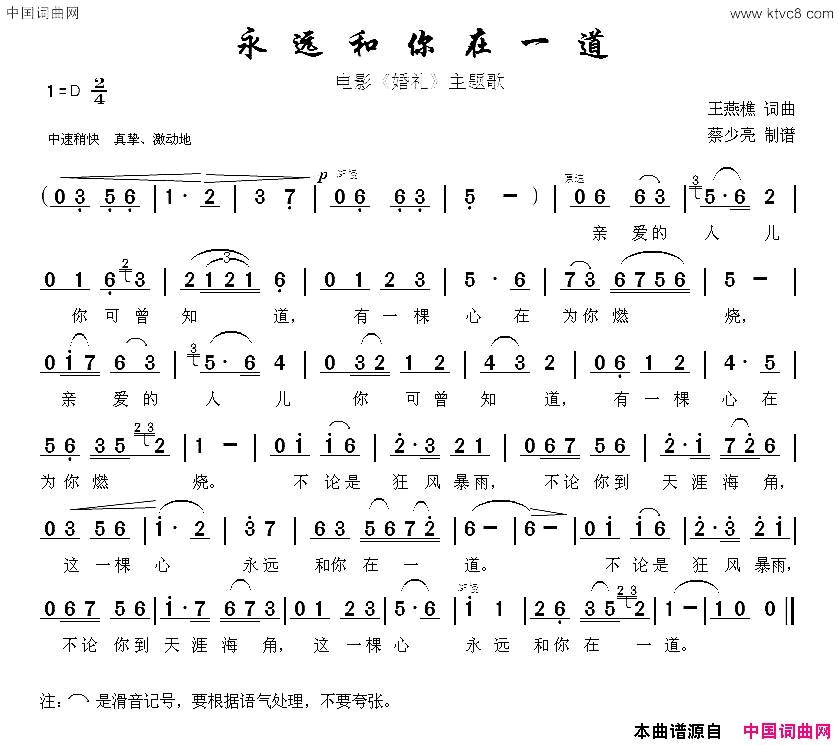 中国词曲网
www.ktvc8.com
永远和你在一道
电影《婚礼》主题歌
1=D 2/4
王燕樵 词曲
蔡少亮 制谱
中速稍快 真挚、激动地
( 0 3 5 6 | 1· 2 | 3 7 | p 0 6 6 3 | 5 － ) | 0 6 6 3 | 3 5· 6 2 |
亲 爱的 人 儿
0 1 6 2 3 | 2 1 2 1 3 6 | 0 1 2 3 | 5· 6 | 7 3 6 7 5 6 | 5 － |
你 可曾 知 道， 有一棵 心 在 为你燃 烧，
0 1 7 6 3 | 3 5· 6 4 | 0 3 2 1 2 | 4 3 2 | 0 6 1 2 | 4· 5 |
亲 爱的 人 儿 你 可曾 知 道， 有一棵 心在
5 6 3 5 2 3 2 | 1 － | 0 1 1 6 | 2· 3 2 1 | 0 6 7 5 6 | 2· 1 7 2 6 |
为你燃 烧。 不论是 狂风暴雨， 不论你到 天涯海角，
0 3 5 6 | 1· 2 | 3 7 | 6 3 5 6 7 2 | 6 － | 6 － | 0 1 1 6 | 2· 3 2 1 |
这一棵 心 永远 和你在一 道。 不论是 狂风暴雨，
0 6 7 5 6 | 1· 7 6 7 3 | 0 1 2 3 | 5· 6 | 1 1 | 2 6 3 5 2 3 2 | 1 － | 1 0 0 ‖
不论你到天涯海角， 这一棵心 永远和你在一道。
注：⌒ 是滑音记号，要根据语气处理，不要夸张。
本曲谱源自 中国词曲网